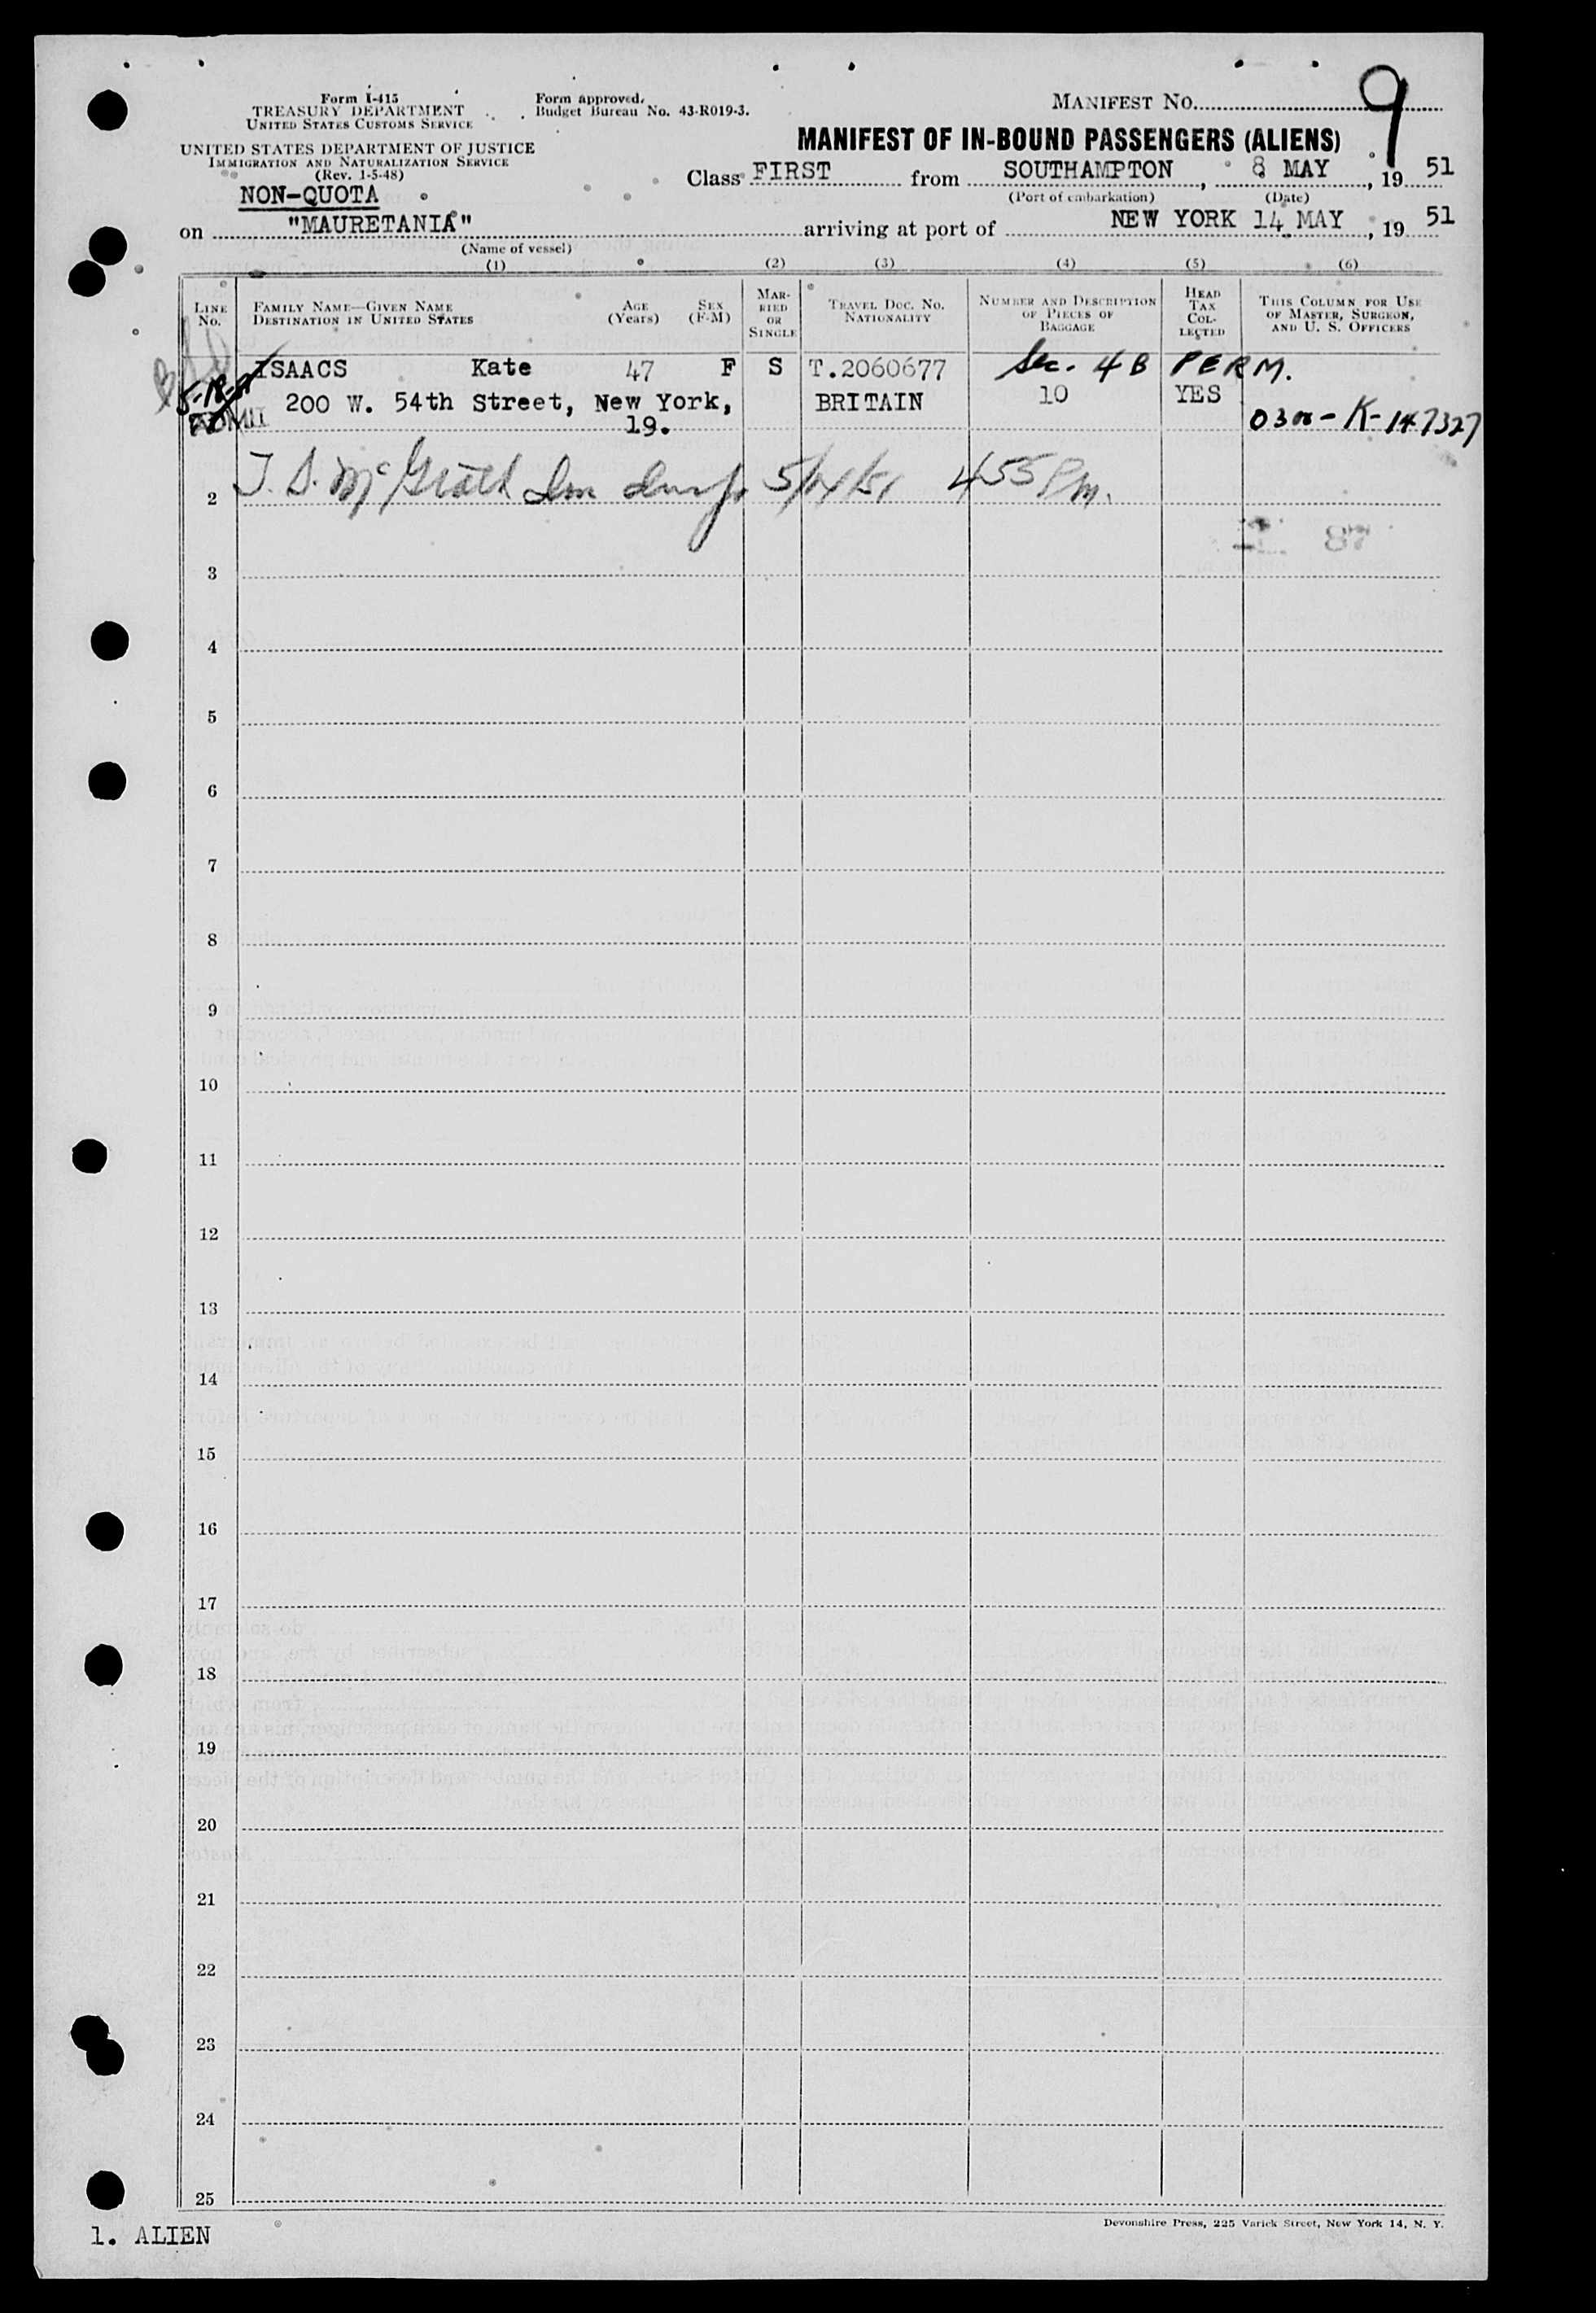 Form I-415
TREASURY DEPARTMENT
UNITED STATES CUSTOMS SERVICE
Form approved.
Budget Bureau No. 43-R019-3.
MANIFEST NO. 9
UNITED STATES DEPARTMENT OF JUSTICE
IMMIGRATION AND NATURALIZATION SERVICE
(Rev. 1-5-48)
NON-QUOTA
MANIFEST OF IN-BOUND PASSENGERS (ALIENS)
Class FIRST from SOUTHAMPTON, 8 MAY, 1951
(Port of embarkation) (Date)
on "MAURETANIA" arriving at port of NEW YORK 14 MAY, 1951
(Name of vessel)
(1) (2) (3) (4) (5) (6)
LINE NO.
FAMILY NAME—GIVEN NAME
DESTINATION IN UNITED STATES
AGE (Years)
SEX (F-M)
MARRIED OR SINGLE
TRAVEL DOC. NO.
NATIONALITY
NUMBER AND DESCRIPTION OF PIECES OF BAGGAGE
HEAD TAX COLLECTED
THIS COLUMN FOR USE OF MASTER, SURGEON, AND U. S. OFFICERS
ISAACS Kate 47 F S T.2060677 Sec. 4B PERM.
ADMIT 200 W. 54th Street, New York, BRITAIN 10 YES
19. 0300-K-147327
T. S. McGrath Imm Insp. 5/14/51 4 55 P.m.
2
87
3
4
5
6
7
8
9
10
11
12
13
14
15
16
17
18
19
20
21
22
23
24
25
1. ALIEN
Devonshire Press, 225 Varick Street, New York 14, N. Y.